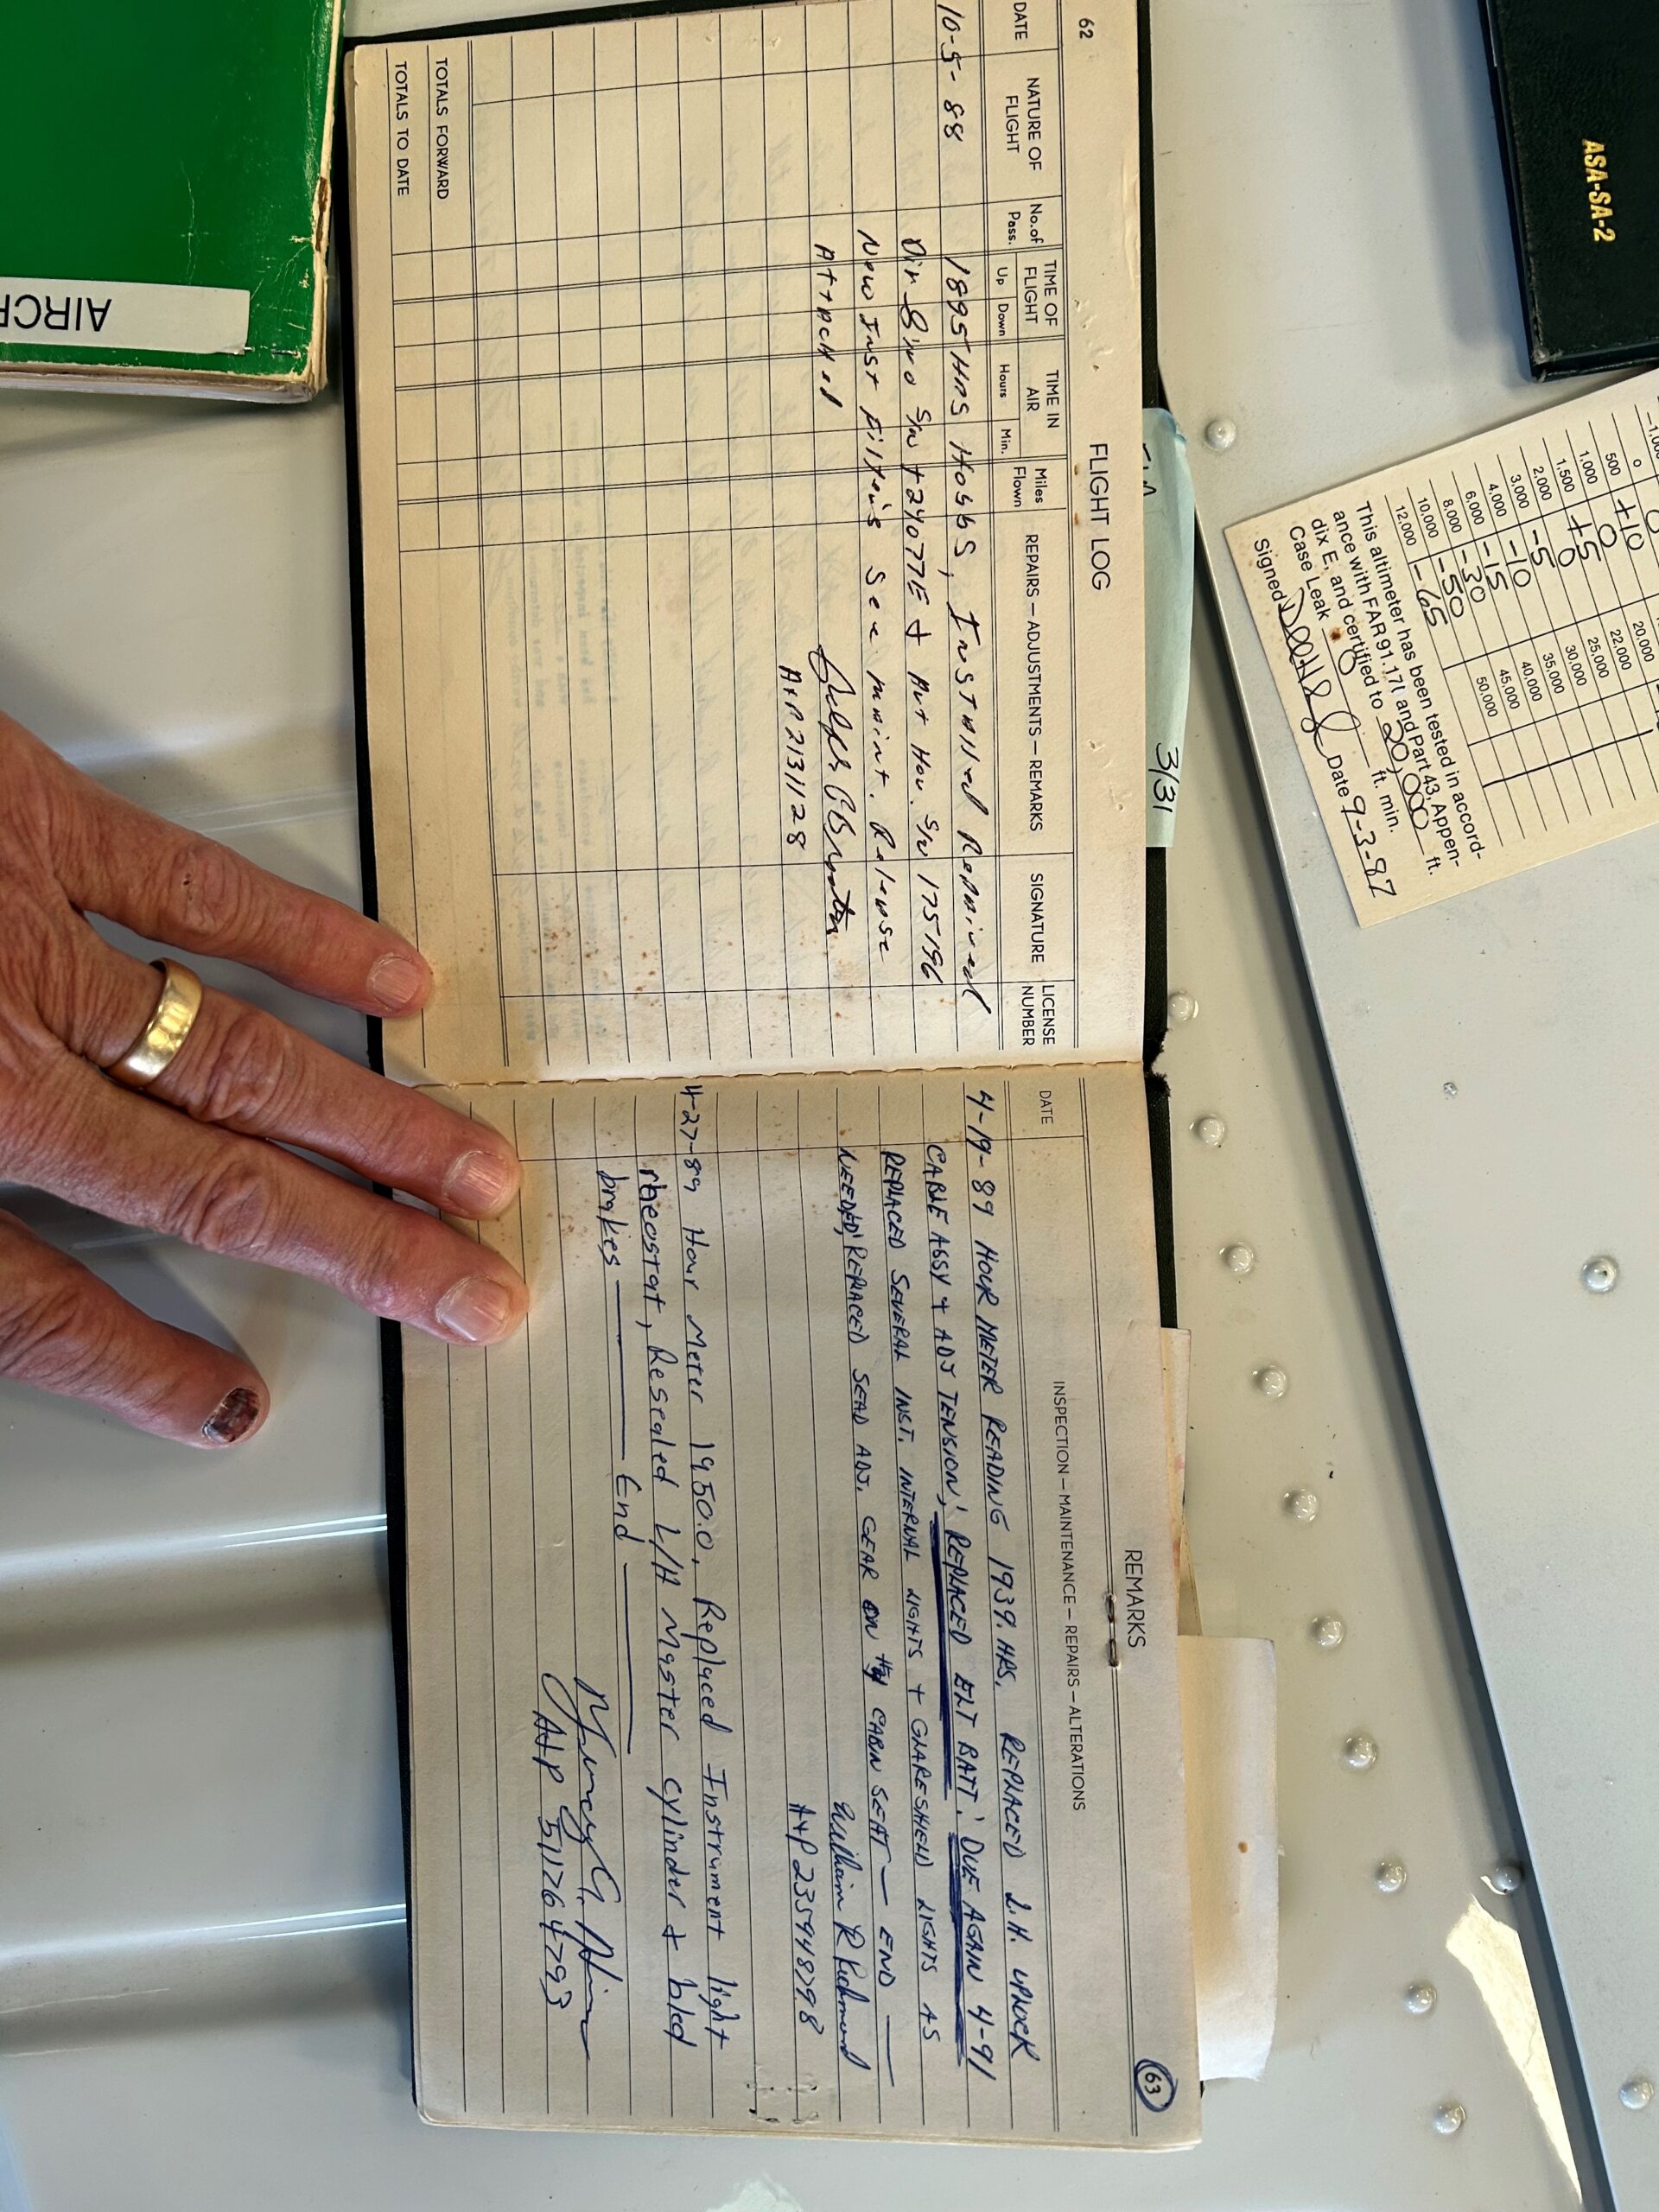 62
FLIGHT LOG
DATE
NATURE OF FLIGHT
No. of Pass.
TIME OF FLIGHT
Up Down
TIME IN AIR
Hours Min.
Miles Flown
REPAIRS — ADJUSTMENTS — REMARKS
SIGNATURE
LICENSE NUMBER
10-5-88 1895 HRS Hobbs, Installed Repaired
Dir Gyro S/N T24077E & Art Hor. S/N 175196
New Inst Filters See maint. Release
Attached
A+P 2131128
TOTALS FORWARD
TOTALS TO DATE
REMARKS
63
DATE
INSPECTION — MAINTENANCE — REPAIRS — ALTERATIONS
4-19-89 HOUR METER READING 1939. HRS. REPLACED L.H. UPLOCK
CABLE ASSY + ADJ TENSION; REPLACED ELT BATT; DUE AGAIN 4-91
REPLACED SEVERAL INST. INTERNAL LIGHTS + GLARESHIELD LIGHTS AS
NEEDED; REPLACED SEAD ADJ. GEAR ON CABIN SEAT — END —
William R Richmond
A+P 235948798
4-27-89 Hour Meter 1950.0, Replaced Instrument light
rheostat, Resealed L/H Master cylinder + bled
brakes — End —
A+P 511264793
ASA-SA-2
AIRCR
3/31
-1,000
0 0
500 +10
1,000 0
1,500 +5
2,000 0
3,000 -5
4,000 -10
6,000 -15
8,000 -30
10,000 -50
12,000 -65
20,000
22,000
25,000
30,000
35,000
40,000
45,000
50,000
This altimeter has been tested in accord-
ance with FAR 91.171 and Part 43, Appen-
dix E, and certified to 20,000 ft.
Case Leak 0 ft. min.
Signed Date 9-3-87